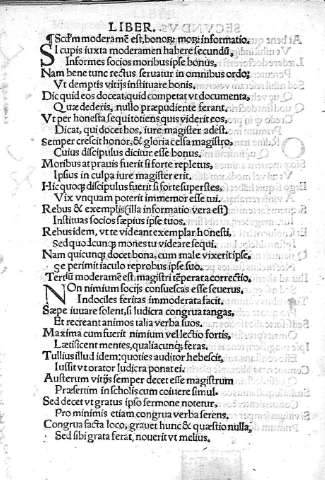 LIBER.
Scďm moderamē est, bonoꝝ moꝝ informatio.
SI cupis iuxta moderamen habere secundū,
Informes socios moribus ipse bonus,
Nam bene tunc rectus seruatur in omnibus ordo;
Vt demptis vitijs instituare bonis,
Dic quid eos doceat quid competat vt documenta,
Quæ dederis, nullo præpudiente ferant.
Vt per honesta sequi totiens quis viderit eros,
Dicat, qui docet hos, iure magister adest.
Semper crescit honor, & gloria celsa magistro,
Cuius discipulus dicitur esse bonus.
Moribus at prauis fuerit si forte repletus,
Ipsus in culpa iure magister erit.
Hic quoqꝫ discipulus fuerit si forte superstes,
Vix vnquam poterit immemor esse tui.
Rebus & exemplis (illa informatio vera est)
Institues socios sæpius ipse tuos.
Rebus idem, vt te videant exemplar honesti,
Sed quodcunqꝫ mones tu videare sequi.
Nam quicunqꝫ docet bona, cum male vixerit ipse,
ge permit iaculo reprobus ipse suo.
Tertiū moderamē est, magistri tēperata correctio,
NOn nimium socijs consuescas esse seuerus,
Indociles feritas immoderata facit.
Sæpe iuuare solent, si ludicra congrua tangas,
Et recreant animos talia verba suos.
Maxima cum fuerit nimium vel lectio fortis,
Lætificent mentes, qualiacunqꝫ feras.
Tullius illud idem: quoties auditor hebescit,
Iussit vt orator ludicra ponat ei.
Austerum vitijs semper decet esse magistrum
Præsertim in scholis cum coiuere simul.
Sed decet vt gratus ipso sermone notetur,
Pro minimis etiam congrua verba serens.
Congrua facta loco, grauet hunc & quæstio nulla,
Sed sibi grata ferat, nouerit vt melius.